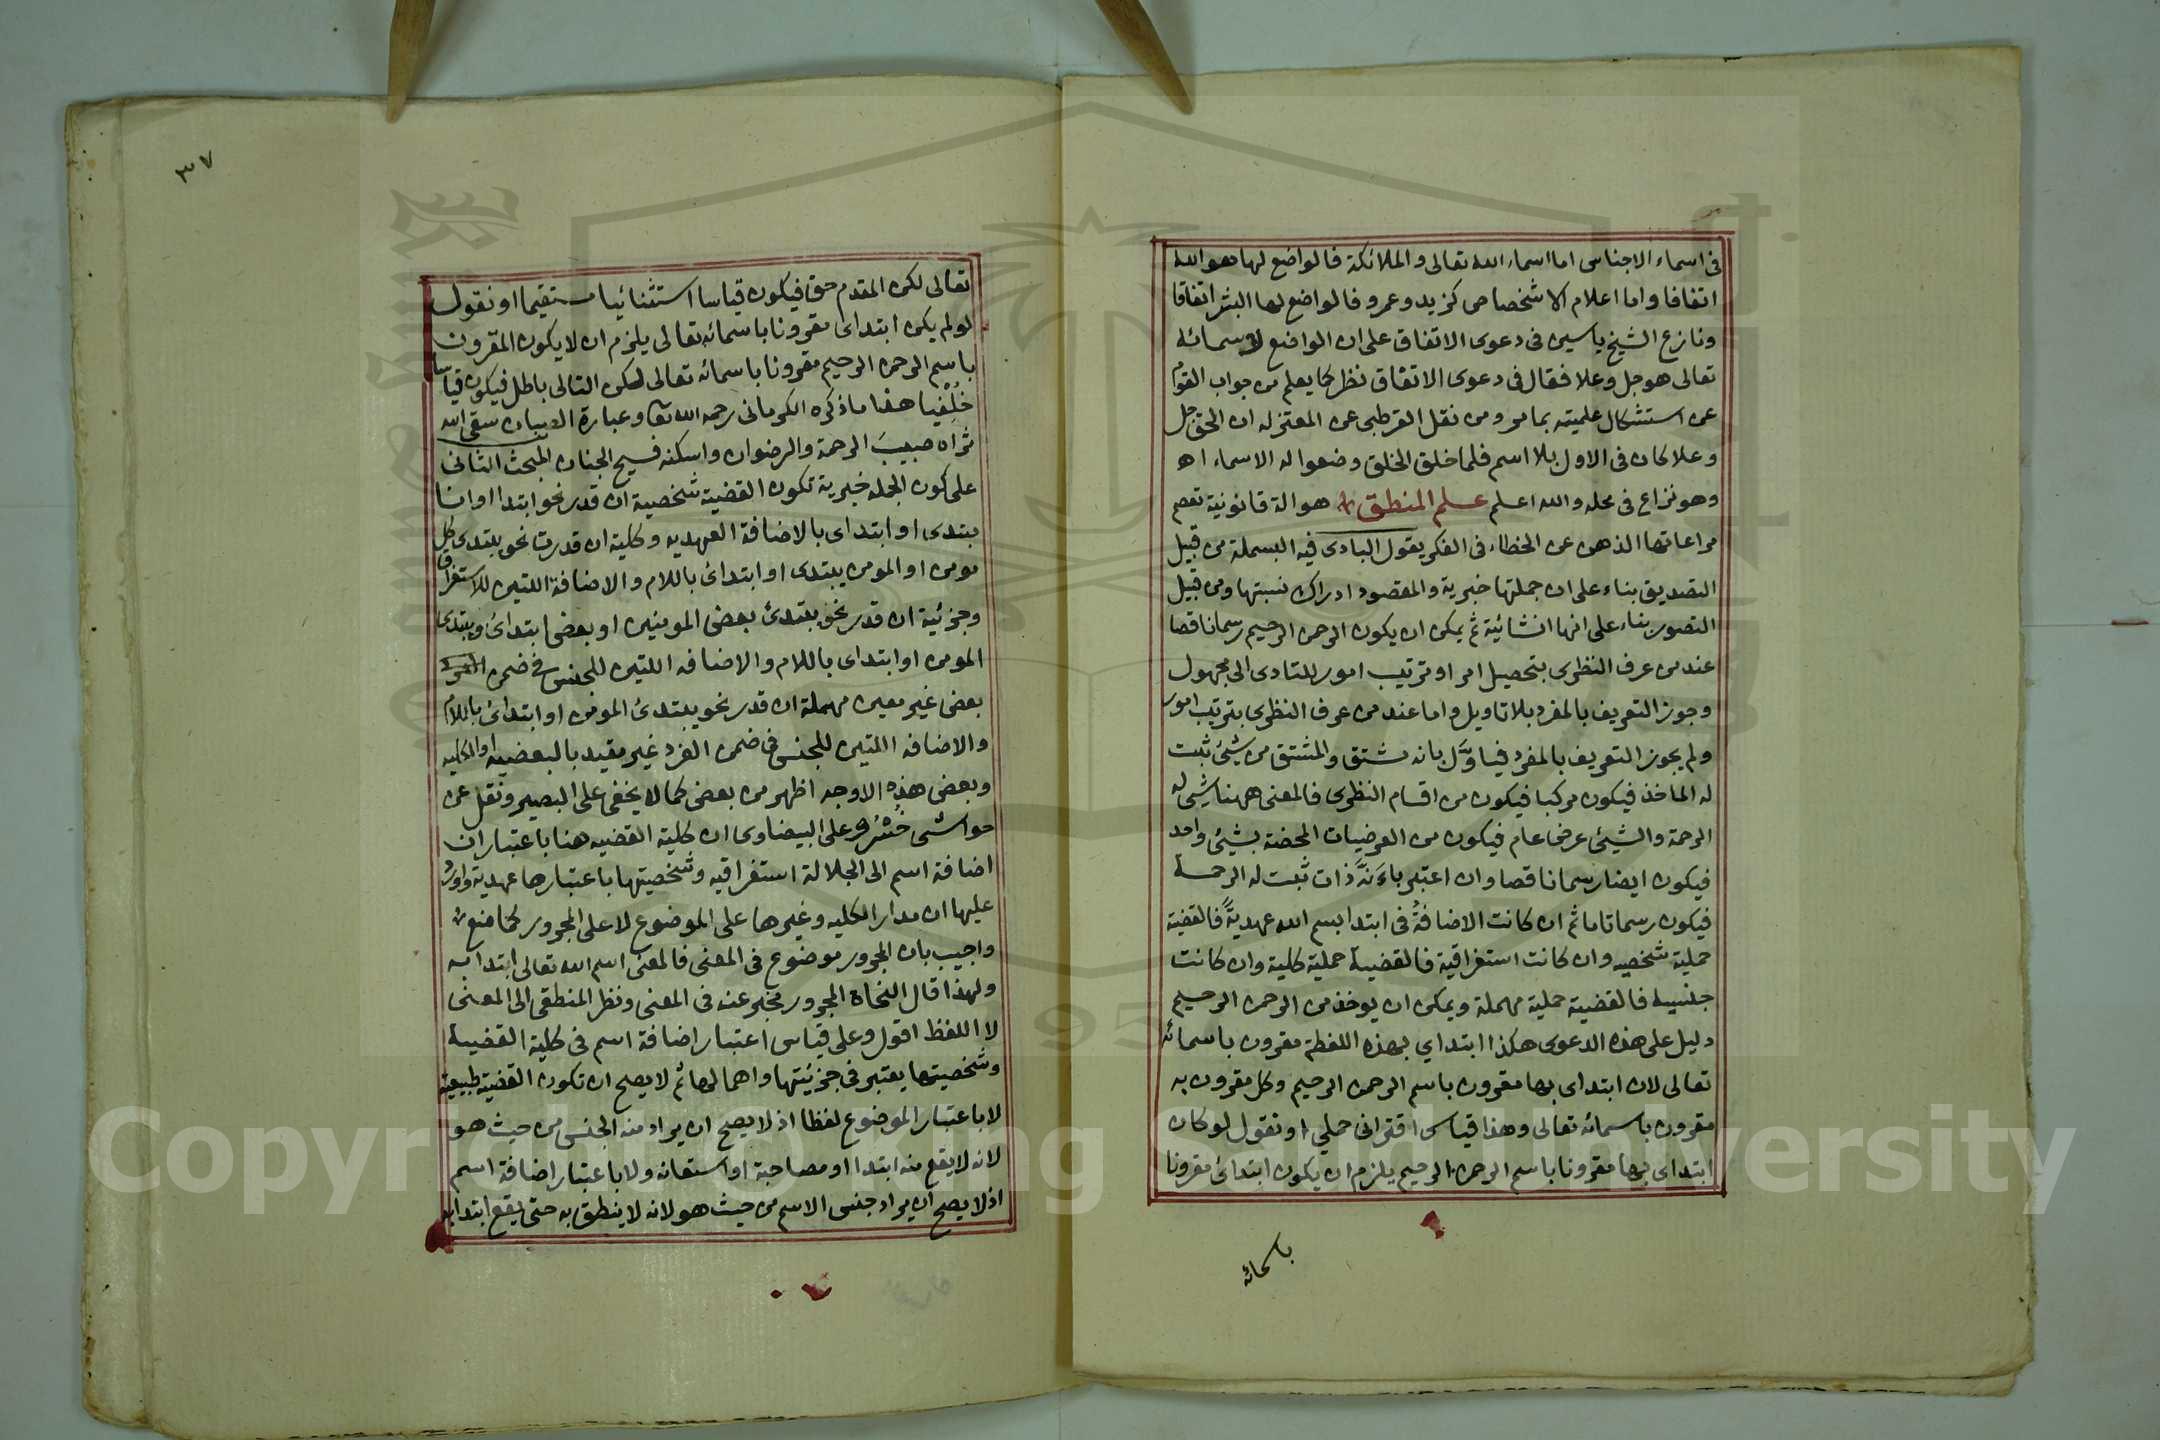 فى اسماء الاجناس اما اسماء الله تعالى والملائكة فالواضع لها هو الله
اتفاقا واما اعلام الاشخاص كزيد وعمرو فالواضع لها البشر اتفاقا
ونازع الشيخ ياسين فى دعوى الاتفاق على ان الواضع لاسمائه
تعالى هو جل وعلا فقال فى دعوى الاتفاق نظر كما يعلم من جواب القوم
عن استشكال علميته بما مر ومن نقل القرطبى عن المعتزله ان الحق جل
وعلا كان فى الاول بلا اسم فلما خلق الخلق وضعوا له الاسماء اه
وهو نزاع فى محله والله اعلم علم المنطق هو الة قانونية تعصم
مراعاتها الذهن عن الخطاء فى الفكر يقول البادى فيه البسملة من قبيل
التصديق بناء على ان جملتها خبرية والمقصود ادراك نسبتها ومن قبيل
التصور بناء على انها انشائية ثم يمكن ان يكون الرحمن الرحيم رسما ناقصا
عند من عرف النظرى بتحصيل امر او ترتيب امور للتادى الى مجهول
وجوز التعريف بالمفرد بلا تاويل واما عند من عرف النظرى بترتيب امور
ولم يجوز التعريف بالمفرد فيأوّل بانه مشتق والمشتق من شئ ثبت
له الماخذ فيكون مركبا فيكون من اقسام النظرى فالمعنى ههنا شئ له
الرحمة والشيئ عرض عام فيكون من العرضيات المختصة بشيئ واحد
فيكون ايضا رسما ناقصا وان اعتبر بأنه ذات ثبت له الرحمة
فيكون رسما تاما ثم ان كانت الاضافة فى ابتدا بسم الله عهدية فالقضية
حملية شخصيه وان كانت استغراقية فالقضية حملية كلية وان كانت
جنسية فالقضية حملية مهملة ويمكن ان يوخذ من الرحمن الرحيم
دليل على هذه الدعوى هكذا ابتداي بهذه اللفظة مقرون باسمائه
تعالى لان ابتداى بها مقرون باسم الرحمن الرحيم وكل مقرون به
مقرون باسمائه تعالى وهذا قياس اقترانى حملي او نقول لو كان
ابتداى بها مقرونا باسم الرحمن الرحيم يلزم ان يكون ابتدائ مقرونا
باسمائه
٣٧
تعالى لكن المقدم حق فيكون قياسا استثنائيا مستقيما او نقول
لو لم يكن ابتداى مقرونا باسمائه تعالى يلزم ان لا يكون المقرون
باسم الرحمن الرحيم مقرونا باسمائه تعالى لكن التالى باطل فيكون قياسا
خلفيا هذا ما ذكره الكرمانى رحمه الله تعا وعبارة الصبان سقى الله
ثراه صبيب الرحمة والرضوان واسكنه فسيح الجنان المبحث الثانى
على كون الجمله خبرية تكون القضية شخصية ان قدر نحو ابتدا او انا
مبتدى او ابتداى بالاضافة العهديه وكلية ان قدرت نحو يبتدى كل
مومن او المومن يبتدى او ابتدائ باللام والاضافة اللتين للاستغراق
وجزئية ان قدر نحو يبتدئ بعض المومنين او بعض ابتدائ ويبتدى
المومن او ابتداى باللام والاضافه اللتين للجنس فى ضمن
بعض غير معين مهملة ان قدر نحو يبتدئ المومن او ابتدائ باللام
والاضافه اللتين للجنس فى ضمن الفرد غير مقيد بالبعضيه او الكليه
وبعض هذه الاوجه اظهر من بعض كما لا يخفى على البصير ونقل عن
حواشى خُسْرو على البيضاوى ان كلية القضيه هنا باعتبار ان
اضافة اسم الى الجلالة استغراقيه وشخصيتها باعتبارها عهدية واورد
عليها ان مدار الكليه وغيرها على الموضوع لا على المجرور كما منع
واجيب بان المجرور موضوع فى المعنى فالمعنى اسم الله تعالى ابتدا به
ولهذا قال النحاة المجرور مخبر عنه فى المعنى ونظر المنطقى الى المعنى
لا اللفظ اقول وعلى قياس اعتبار اضافة اسم فى كلية القضية
وشخصيتها يعتبر فى جزئيتها واهمالها ثم لا يصح ان تكون القضية طبيعية
لا باعتبار الموضوع لفظا اذ لا يصح ان يراد منه الجنس من حيث هو
لانه لا يقع منه ابتدا او مصاحبة او استعانه ولا باعتبار اضافة اسم
اذ لا يصح ان يراد جنس الاسم من حيث هو لانه لا ينطق به حتى يقع ابتدا به
Copyright © King Saud University